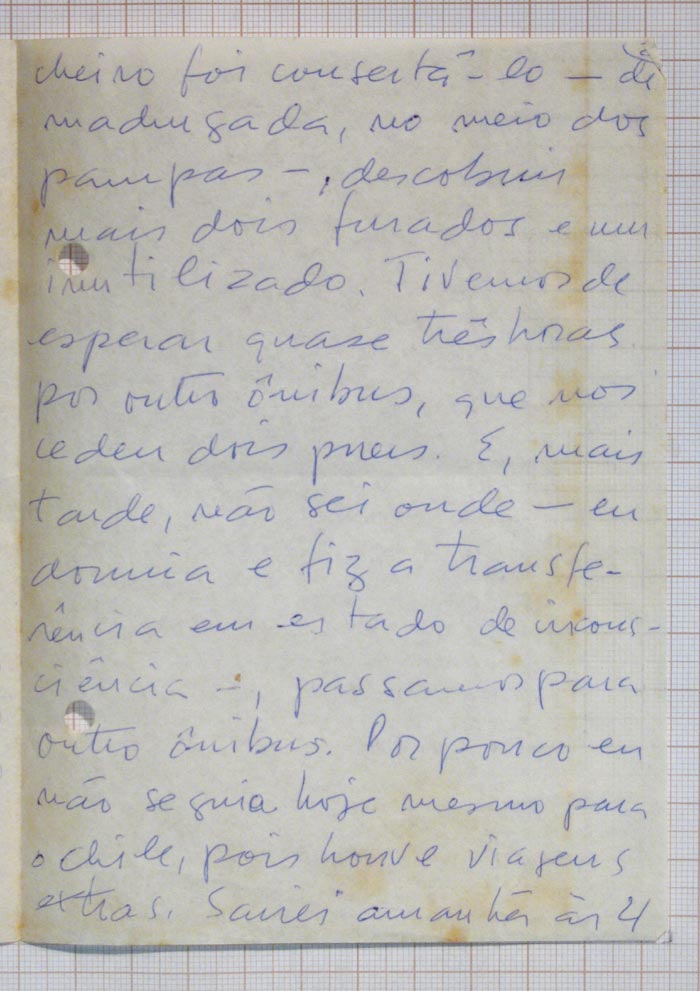 cheiro foi consertá-lo – de
madrugada, no meio dos
pampas –, descobrir
mais dois furados e um
inutilizado. Tivemos de
esperar quase três horas
por outro ônibus, que nos
cedeu dois pneus. E, mais
tarde, não sei onde – eu
dormia e fiz a transfe-
rência em estado de incons-
ciência –, passamos para
outro ônibus. Por pouco eu
não seguia hoje mesmo para
o Chile, pois houve viagens
extras. Sairei amanhã às 4